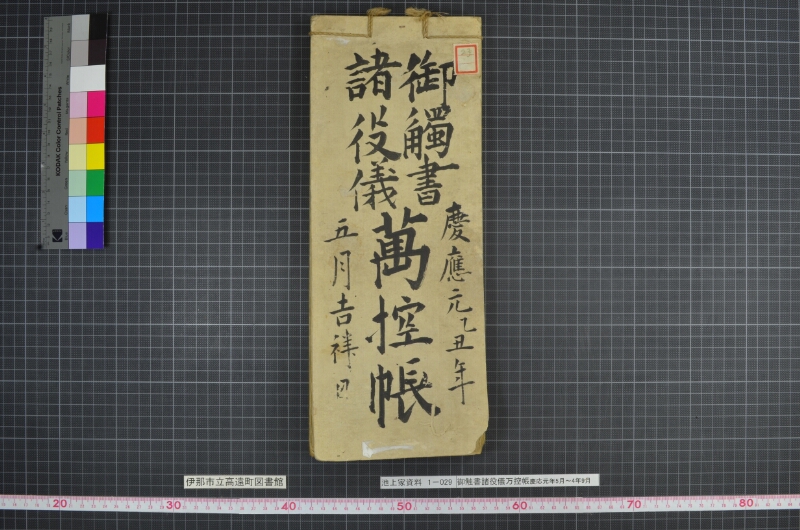 慶應元乙丑年
御觸書
諸役儀
萬控帳
五月吉祥日
KODAK Color Control Patches
伊那市立高遠町図書館
池上家資料 1-029 御触書諸役儀万控帳慶応元年5月～4年9月
20 30 40 50 60 70 80